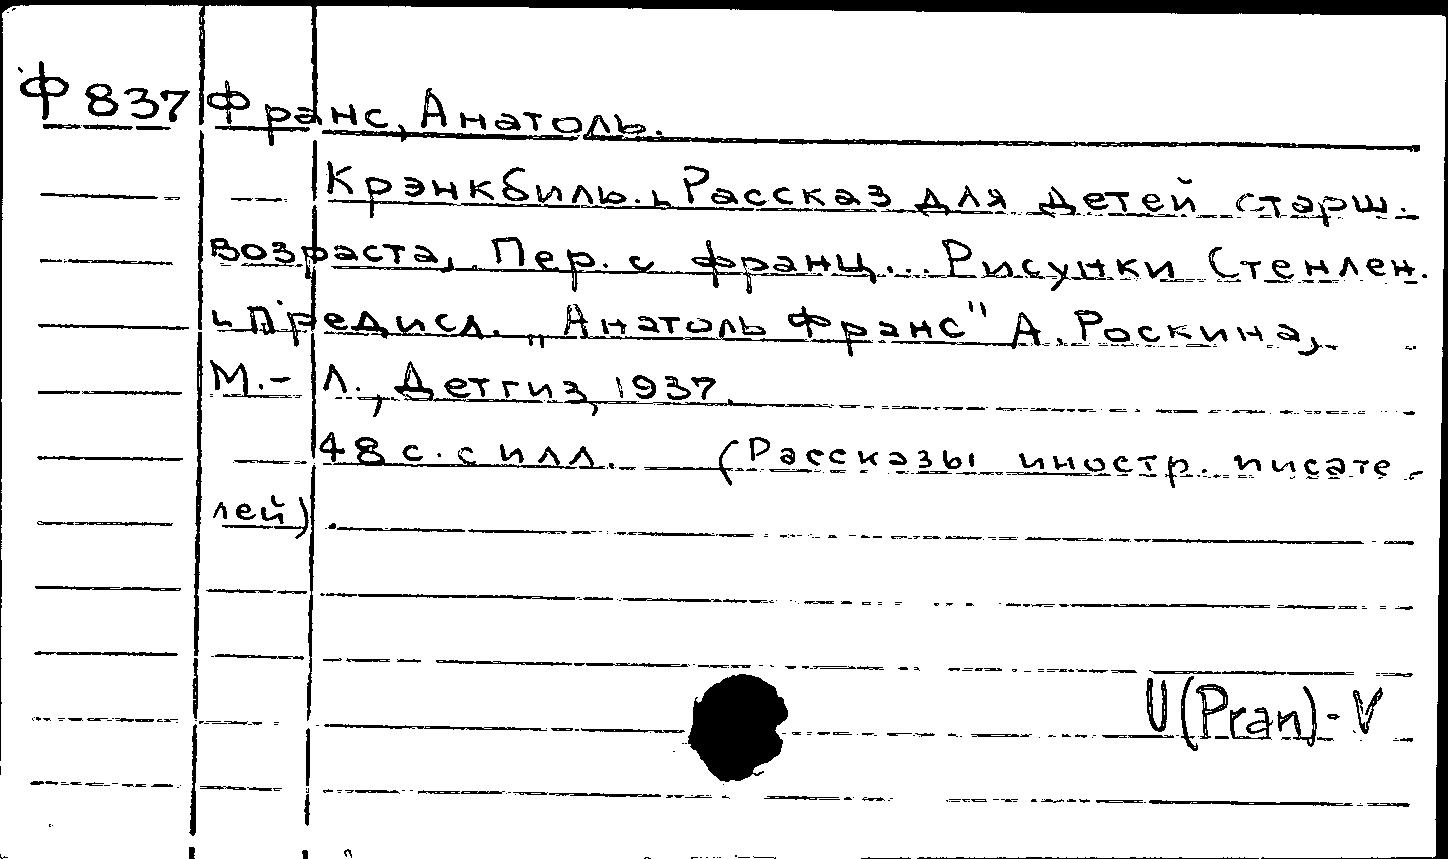 Ф837 Франс, Анатоль.
Крэнкбиль. Рассказ для детей старш.
возраста, Пер. с франц... Рисунки Стенлен.
Предисл. „Анатоль Франс" А. Роскина,
М.-Л., Детгиз, 1937.
48 с. с илл. (Рассказы иностр. писате-
лей).
U(Pran)-V